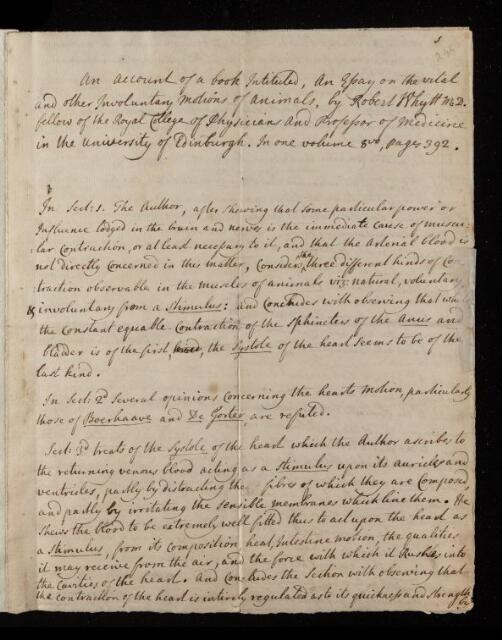 An account of a book Intituled, An Essay on the vital
and other Involuntary Motions of Animals, by Robert Whytt M.D.
fellow of the Royal College of Physicians and Professor of Medicine
in the University of Edinburgh. In one volume 8vo, pages 392.
In Sect: 1. The Author, after shewing that some particular power or
Influence lodged in the brain and nerves is the immediate cause of muscu-
lar contraction, or at least necessary to it, and that the Arterial blood is
not directly concerned in this matter, Considers the three different kinds of Con
traction observable in the muscles of animals viz: natural, voluntary,
& involuntary from a Stimulus: and concludes with observing that while
the Constant equable Contraction of the Sphincters of the Anus and
bladder is of the first, the Systole of the heart seems to be of the
last kind.
In Sect: 2d Several opinions concerning the hearts Motion, particularly
those of Boerhaave and De Gorter, are refuted.
Sect: 3d treats of the Systole of the heart which the Author ascribes to
the returning venous blood acting as a Stimulus upon its auricles and
ventricles, partly by distracting the fibres of which they are Composed
and partly by irritating the sensible membranes which line them. He
shews the blood to be extremely well fitted thus to act upon the heart as
a Stimulus, from its composition heat, Intestine motion, the qualities
it may receive from the air, and the force with which it Rushes into
the Cavities of the heart. And Concludes the Section with observing that
the contraction of the heart is intirely regulated as to its quickness and strength
by